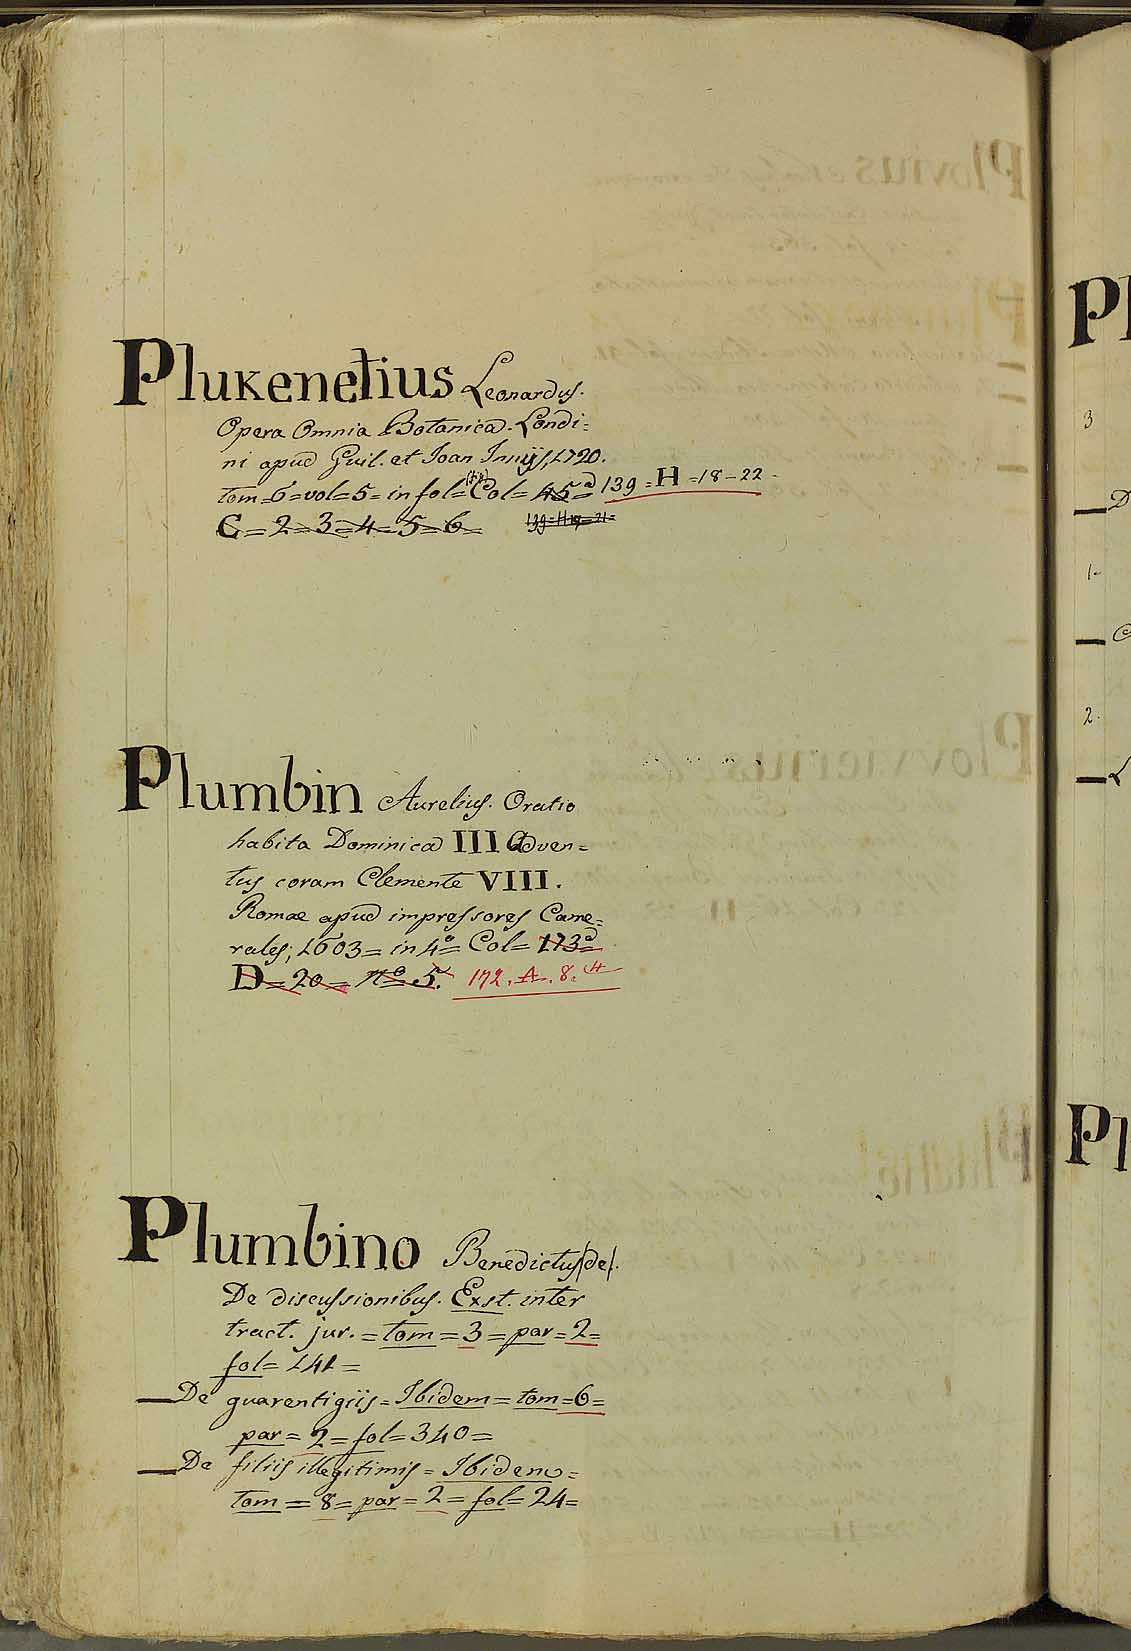 Plukenetius Leonardus.
Opera Omnia Botanica. Londi=
ni apud Guil. et Joan Innyj, 1720.
tom=6=vol=5=in fol= Col= 45= 139=H=18-22
C=2=3=4=5=6=
Plumbin Aurelius. Oratio
habita Dominica III Adven=
tus coram Clemente VIII.
Romae apud impressores Came=
rales; 1603= in 4º= Col= 173=
D=20= nº= 5. 172. A. 8. (4
Plumbino Benedictus (de).
De discussionibus. Exst. inter
tract. jur. = tom = 3 = par = 2=
fol= 141 =
—De guarentigiis = Ibidem = tom=6=
par = 2 = fol = 340 =
—De filiis illegitimis = Ibidem =
tom = 8 = par = 2 = fol = 24=
Pl
3
—D
1-
—C
2.
—L
Pl